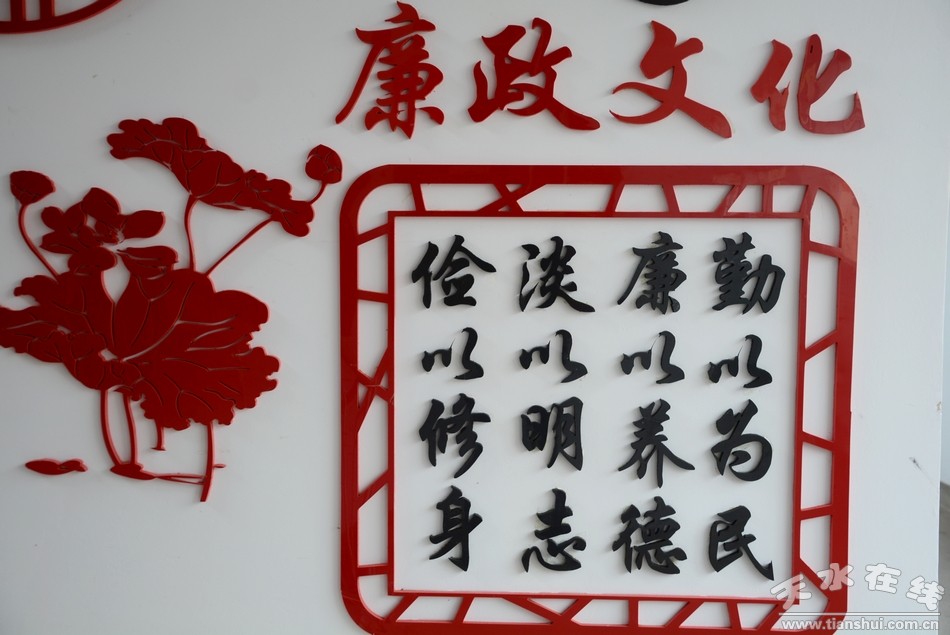 廉政文化
勤以为民
廉以养德
淡以明志
俭以修身
天水在线
www.tianshui.com.cn